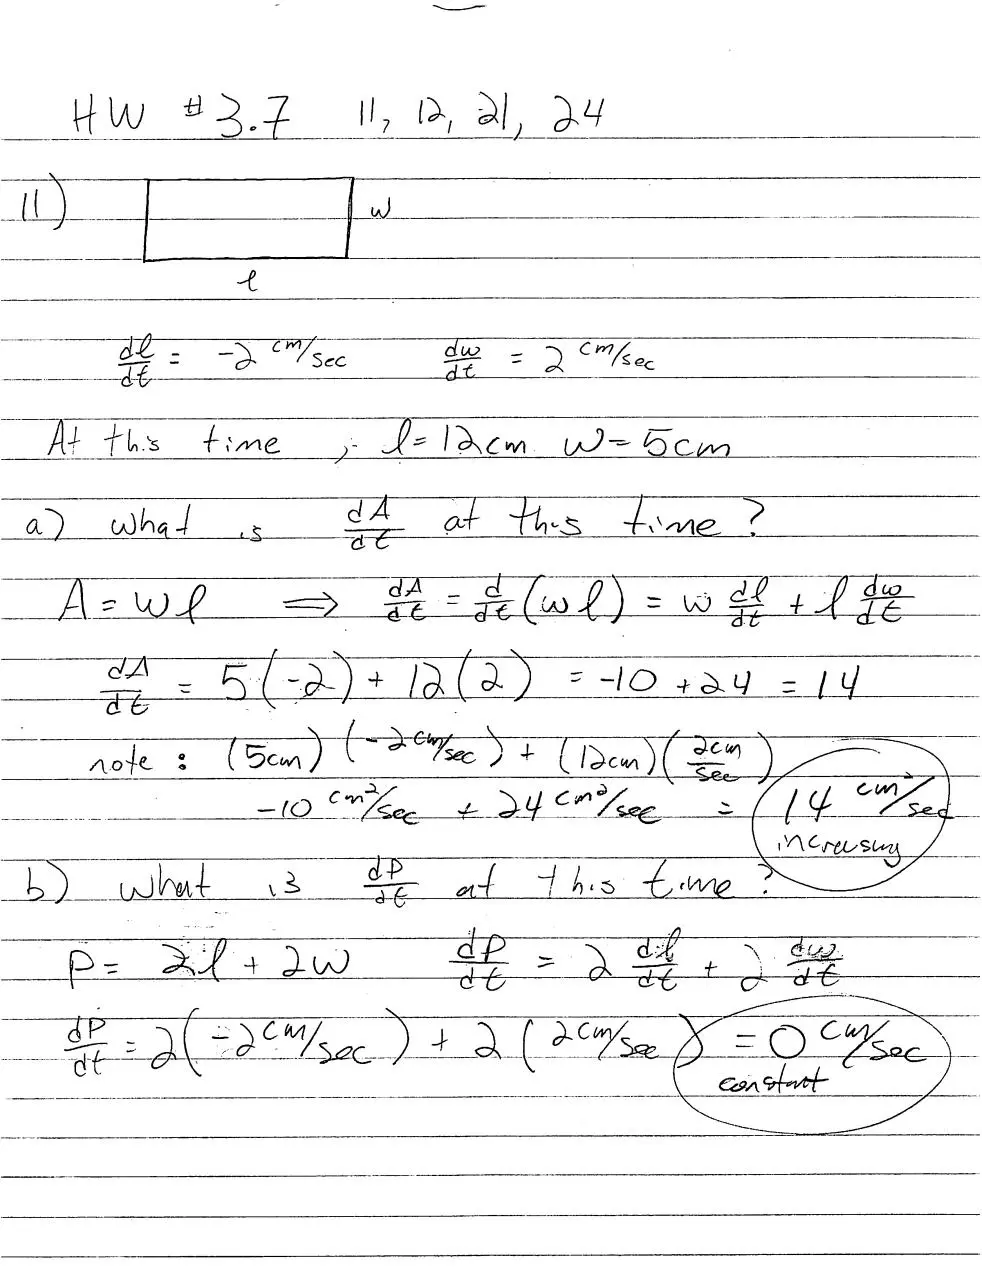 HW #3.7 11, 12, 21, 24
11)
w
l
dl/dt = -2 cm/sec dw/dt = 2 cm/sec
At this time, l=12cm w=5cm
a) what is dA/dt at this time?
A = wl ⇒ dA/dt = d/dt (wl) = w dl/dt + l dw/dt
dA/dt = 5(-2) + 12(2) = -10 + 24 = 14
note: (5cm)(-2cm/sec) + (12cm)(2cm/sec)
-10 cm²/sec + 24 cm²/sec = 14 cm²/sec
increasing
b) what is dP/dt at this time?
P = 2l + 2w dP/dt = 2 dl/dt + 2 dw/dt
dP/dt = 2(-2cm/sec) + 2(2cm/sec) = 0 cm/sec
constant